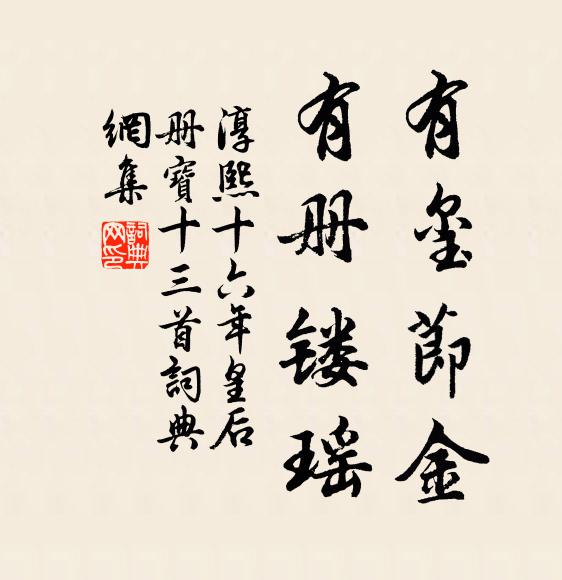 有玺莭金
有册镂瑶
淳熙十六年皇后
册寶十三首詞典
網集
詞典
网印